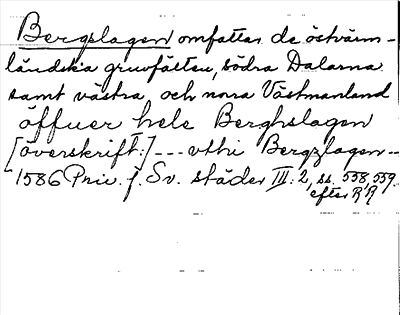 Bergslagen omfattar de östvärm-
ländska gruvfälten, södra Dalarna
samt västra och norra Västmanland
öffuer hele Berghslagen
[överskrift:] --- vthi Bergzlagen --
1586 Priv. f. Sv. städer III: 2, ss. 558, 559.
efter RR